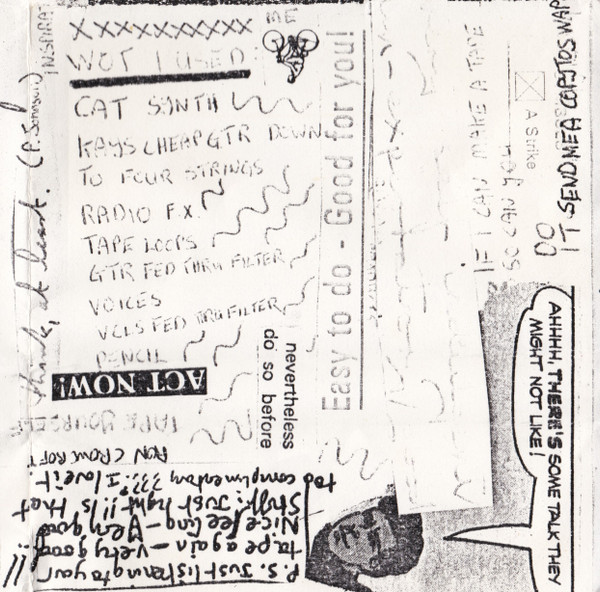 INSPIRAT
ME
XXXXXXXXXX
WOT I USED
CAT SYNTH
KAYS CHEAP GTR DOWN
TO FOUR STRINGS
RADIO F.X.
TAPE LOOPS
GTR FED THRU FILTER
VOICES
VCLS FED THRU FILTER
PENCIL
ACT NOW!
TAPE YOURSELF
RON CROWCROFT
P.S. Just listening to your
tape again - very good!!
Nice feeling - Very good
Stuff: Just right!! Is that
too complimentary???. I love it.
nevertheless
do so before
Easy to do - Good for you!
IF I CAN MAKE A TAPE
SO CAN YOU
A Strike
DO
AHHHH, THERE'S SOME TALK THEY
MIGHT NOT LIKE!